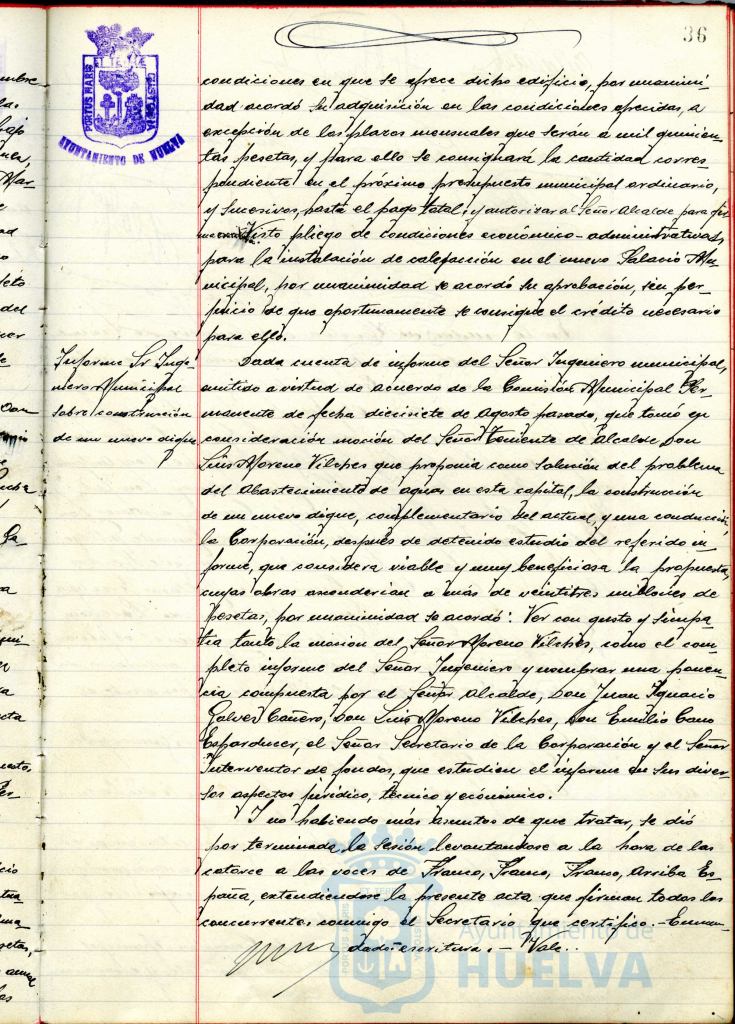 36
PORTUS MARIS ET TERRE CUSTODIA
AYUNTAMIENTO DE HUELVA
condiciones en que se ofrece dicho edificio, por unanimi-
dad acordó su adquisición en las condiciones ofrecidas, a
excepción de los plazos mensuales que serán a mil quinien-
tas pesetas, y para ello se consignará la cantidad corres-
pondiente en el próximo presupuesto municipal ordinario,
y sucesivos hasta el pago total, y autorizar al Señor Alcalde para
Visto pliego de condiciones económico-administrativas
para la instalación de calefacción en el nuevo Palacio Mu-
nicipal, por unanimidad se acordó su aprobación, sin per-
juicio de que oportunamente se consigne el crédito necesario
para ello.
Informe Sr Inge-
niero Municipal
sobre construcción
de un nuevo dique
Dada cuenta de informe del Señor Ingeniero municipal,
emitido a virtud de acuerdo de la Comisión Municipal Per-
manente de fecha diecisiete de Agosto pasado, que tomó en
consideración moción del Señor Teniente de Alcalde Don
Luis Moreno Vilches que proponia como solución del problema
del Abastecimiento de aguas en esta capital, la construcción
de un nuevo dique, complementario del actual, y una conducción,
la Corporación, después de detenido estudio del referido in-
forme, que considera viable y muy beneficiosa la propuesta,
cuyas obras ascenderian a más de veintitres millones de
pesetas, por unanimidad se acordó: Ver con gusto y simpa-
tia tanto la mocion del Señor Moreno Vilches, como el com-
pleto informe del Señor Ingeniero y nombrar una ponen-
cia compuesta por el Señor Alcalde, Don Juan Ignacio
Galvez Cañero, Don Luis Moreno Vilches, Don Emilio Cano
el Señor Secretario de la Corporación y el Señor
Interventor de fondos, que estudien el informe en sus diver-
sos aspectos juridico, técnico y económico.
Y no habiendo más asuntos de que tratar, se dió
por terminada la sesión levantandose a la hora de las
catorce a las voces de Franco, Franco, Franco, Arriba Es-
paña, extendiendose la presente acta que firman todos los
concurrentes conmigo el Secretario que certifico.- Enmen-
dado: escritura.- Vale.-
Ayuntamiento de
HUELVA